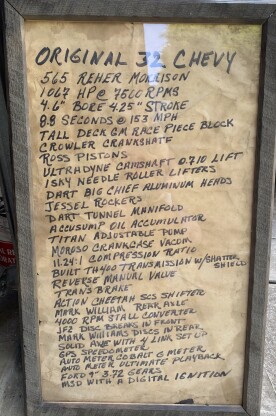 ORIGINAL 32 CHEVY
565 REHER MORRISON
1067 HP @ 7500 RPMS
4.6" BORE 4.25" STROKE
8.8 SECONDS @ 153 MPH
TALL DECK GM RACE PIECE BLOCK
CROWLER CRANKSHAFT
ROSS PISTONS
ULTRADYNE CAMSHAFT 0.710 LIFT
ISKY NEEDLE ROLLER LIFTERS
DART BIG CHIEF ALUMINUM HEADS
JESSEL ROCKERS
DART TUNNEL MANIFOLD
ACCUSUMP OIL ACCUMULATOR
TITAN ADJUSTABLE PUMP
MOROSO CRANKCASE VACUM
11.24:1 COMPRESSION RATIO
BUILT TH400 TRANSMISSION W/SHATTER SHIELD
REVERSE MANUAL VALVE
TRANS BRAKE
ACTION CHEETAH SCS SHIFTER
MARK WILLIAM REAR AXLE
4000 RPM STALL CONVERTER
JFZ DISC BREAKS IN FRONT
MARK WILLIAMS DISCS IN REAR
SOLID AXLE WITH 4 LINK SET UP
GPS SPEEDOMETER
AUTO METER COBALT G METER
AUTO METER ULTIMATE PLAYBACK
FORD 9" 3.72 GEARS
MSD WITH A DIGITAL IGNITION